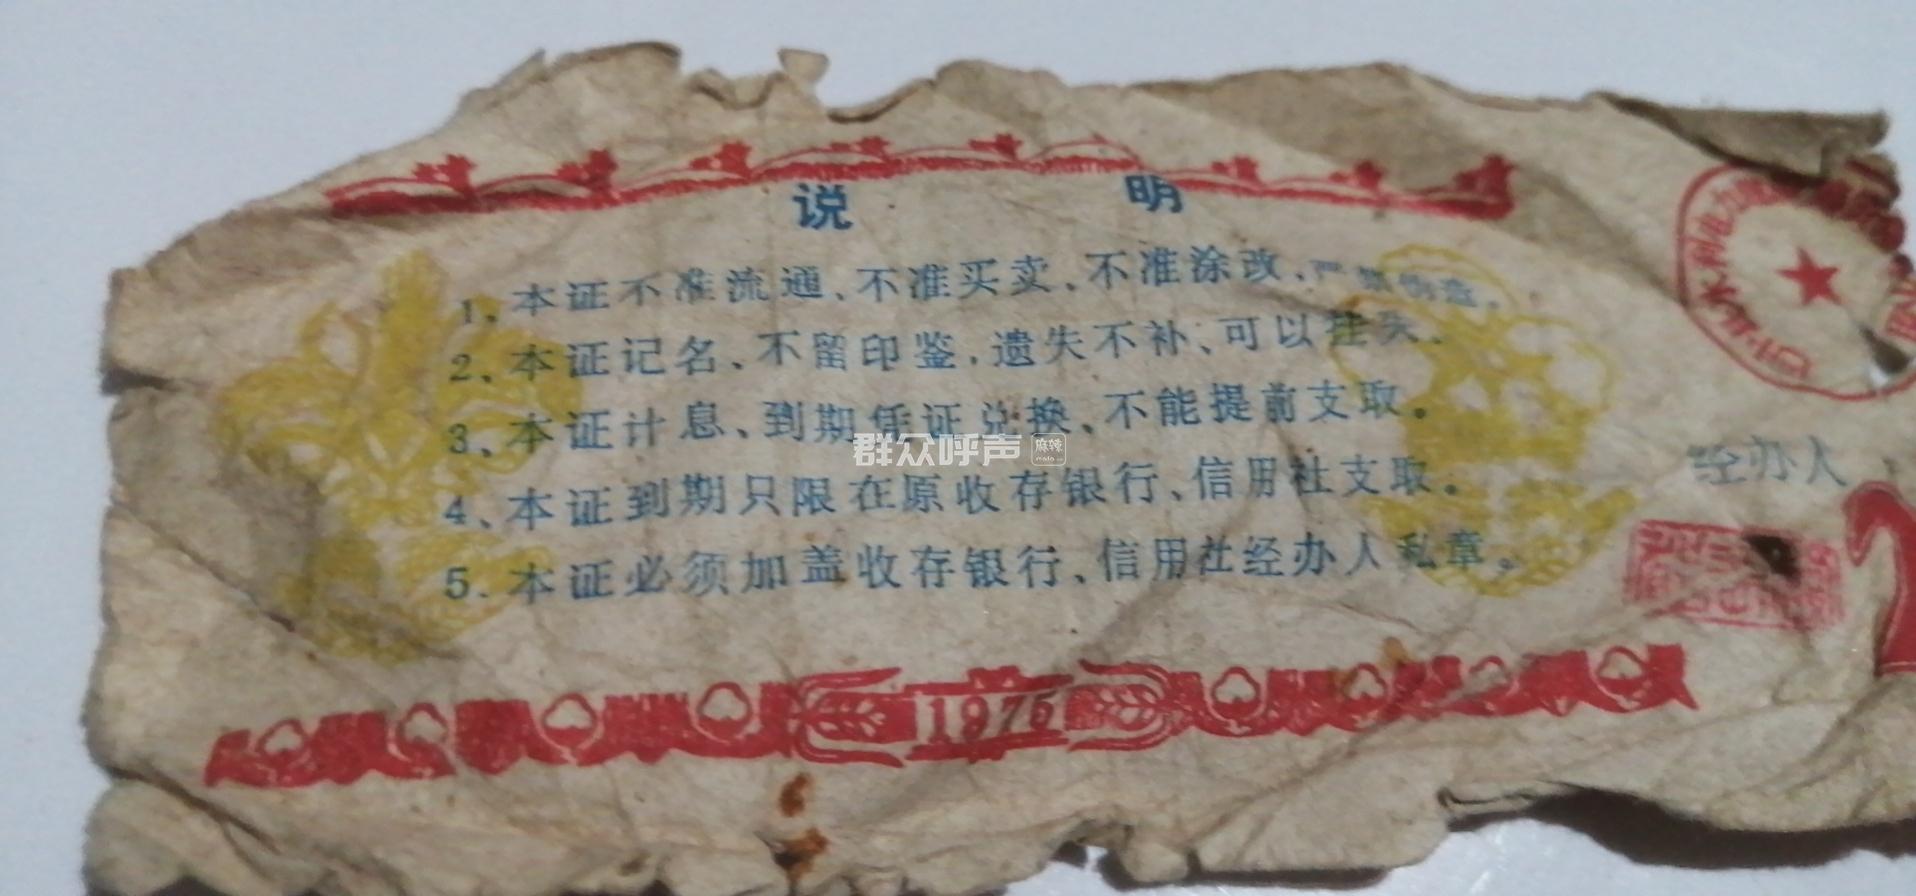 说 明
1、本证不准流通、不准买卖、不准涂改、严禁伪造。
2、本证记名、不留印鉴，遗失不补、可以挂失。
3、本证计息、到期凭证兑换、不能提前支取。
4、本证到期只限在原收存银行、信用社支取。
5.本证必须加盖收存银行、信用社经办人私章。
1976
水利电力
经办人
群众呼声
麻辣